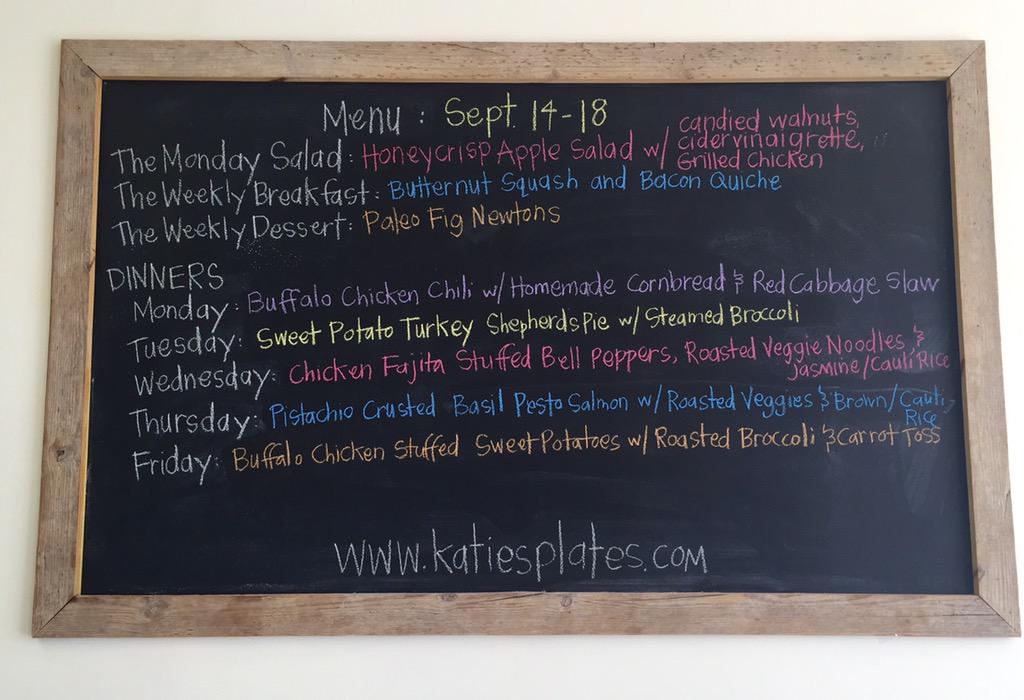 Menu : Sept. 14-18
The Monday Salad: Honeycrisp Apple Salad w/ candied walnuts,
cider vinaigrette,
Grilled Chicken
The Weekly Breakfast: Butternut Squash and Bacon Quiche
The Weekly Dessert: Paleo Fig Newtons
DINNERS
Monday: Buffalo Chicken Chili w/ Homemade Cornbread & Red Cabbage Slaw
Tuesday: Sweet Potato Turkey Shepherds Pie w/ Steamed Broccoli
Wednesday: Chicken Fajita Stuffed Bell Peppers, Roasted Veggie Noodles &
Jasmine/Cauli Rice
Thursday: Pistachio Crusted Basil Pesto Salmon w/ Roasted Veggies & Brown/Cauli
Rice
Friday: Buffalo Chicken Stuffed Sweet Potatoes w/ Roasted Broccoli & Carrot Toss
www.katiesplates.com